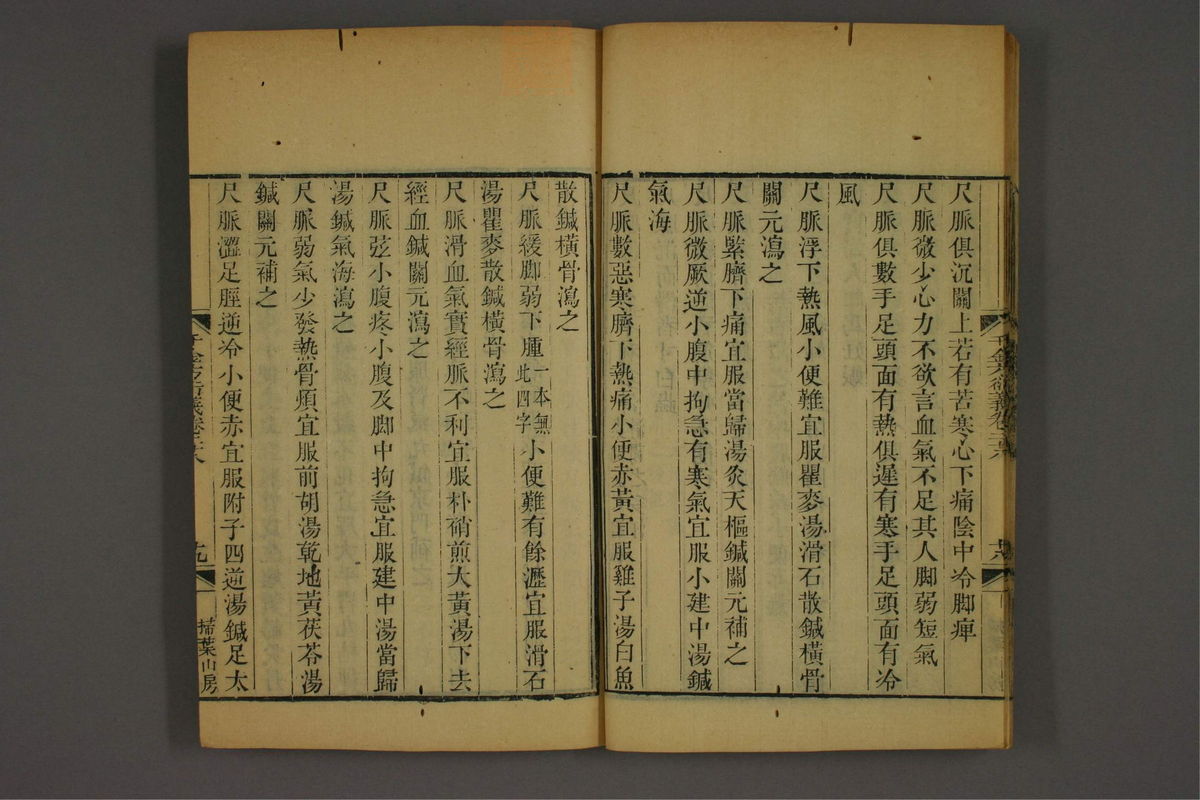 尺脈俱沉關上若有苦寒心下痛陰中冷脚痺
尺脈微少心力不欲言血氣不足其人脚弱短氣
尺脈俱數手足頭面有熱俱遲有寒手足頭面有冷
風
尺脈浮下熱風小便難宜服瞿麥湯滑石散鍼橫骨
關元瀉之
尺脈緊臍下痛宜服當歸湯灸天樞鍼關元補之
尺脈微厥逆小腹中拘急有寒氣宜服小建中湯鍼
氣海
尺脈數惡寒臍下熱痛小便赤黃宜服雞子湯白魚
散鍼橫骨瀉之
尺脈緩脚弱下腫一本無此四字小便難有餘瀝宜服滑石
湯瞿麥散鍼橫骨瀉之
尺脈滑血氣實經脈不利宜服朴硝煎大黃湯下去
經血鍼關元瀉之
尺脈弦小腹疼小腹及脚中拘急宜服建中湯當歸
湯鍼氣海瀉之
尺脈弱氣少發熱骨煩宜服前胡湯乾地黃茯苓湯
鍼關元補之
尺脈澀足脛逆冷小便赤宜服附子四逆湯鍼足太
掃葉山房